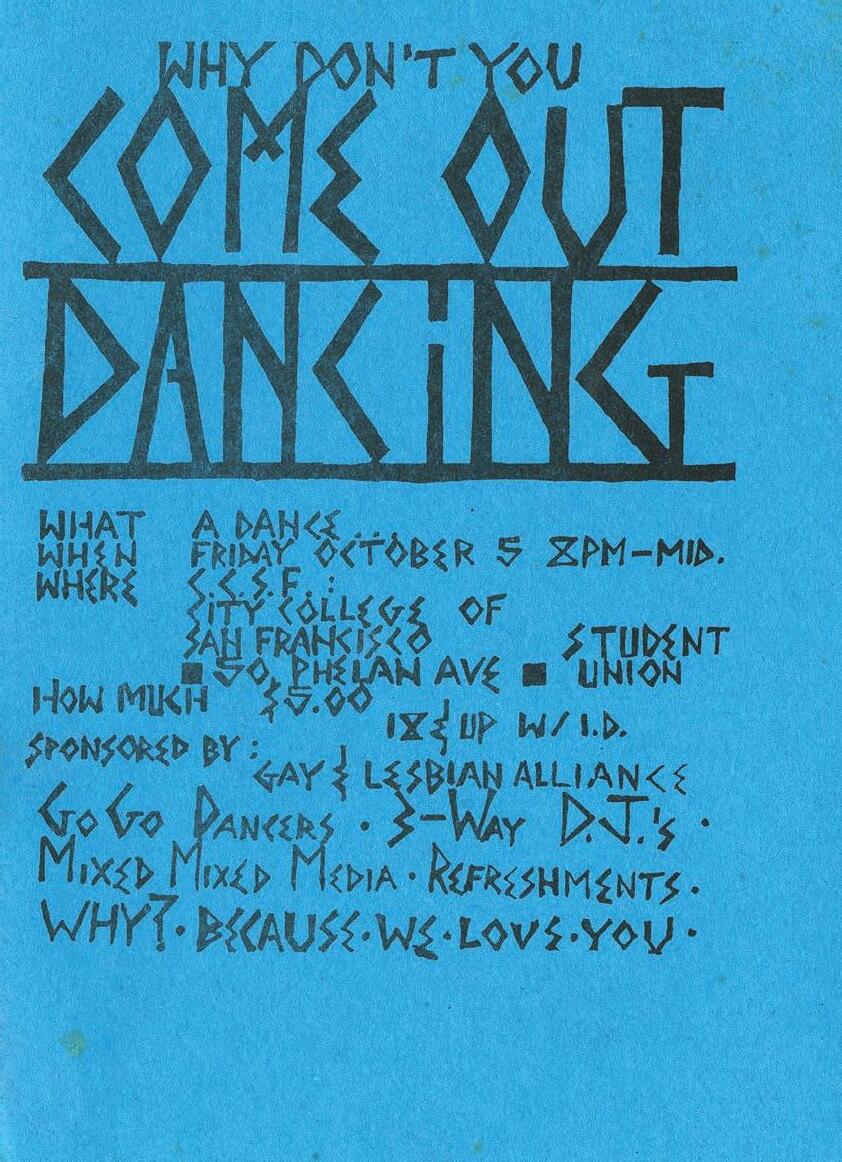 WHY DON'T YOU
COME OUT
DANCING
WHAT A DANCE...
WHEN FRIDAY OCTOBER 5 8PM-MID.
WHERE C.C.S.F.:
CITY COLLEGE OF
SAN FRANCISCO STUDENT
■ 50 PHELAN AVE ■ UNION
HOW MUCH $5.00
18 & UP W/ I.D.
SPONSORED BY:
GAY & LESBIAN ALLIANCE
GO GO DANCERS · 3-WAY D.J.'S ·
MIXED MIXED MEDIA · REFRESHMENTS ·
WHY? · BECAUSE · WE · LOVE · YOU ·